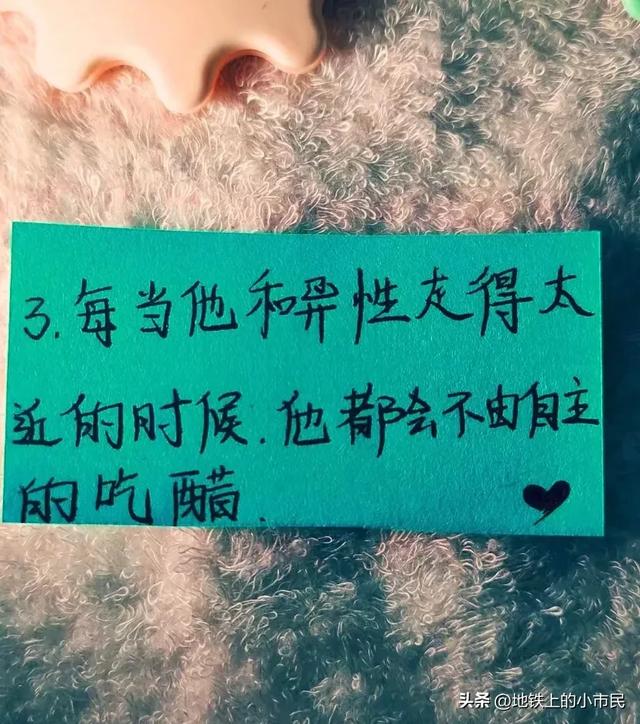 3.每当他和异性走得太
近的时候.他都会不由自主
的吃醋.
头条 @地铁上的小市民